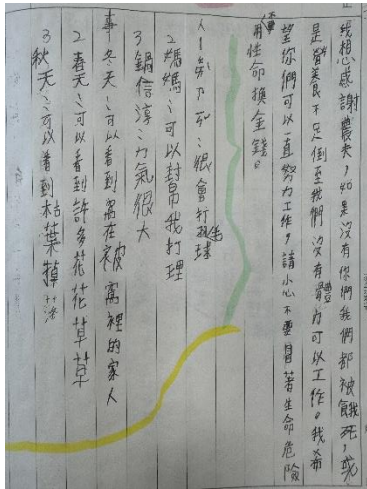 我想感謝農夫，如果沒有你們我們都被餓死，或
是營養不足倒至我們沒有體力可以工作。我希
望你們可以一直努力工作，請小心不要冒著生命危險
用性命換金錢。
人1 很會打球
2媽媽：可以封帛我打理
3鍋信淳：力氣很大
事冬天：可以看到窩在被窩裡的家人
2春天：可以看到許多花花草草
3秋天：可以看到枯葉掉落